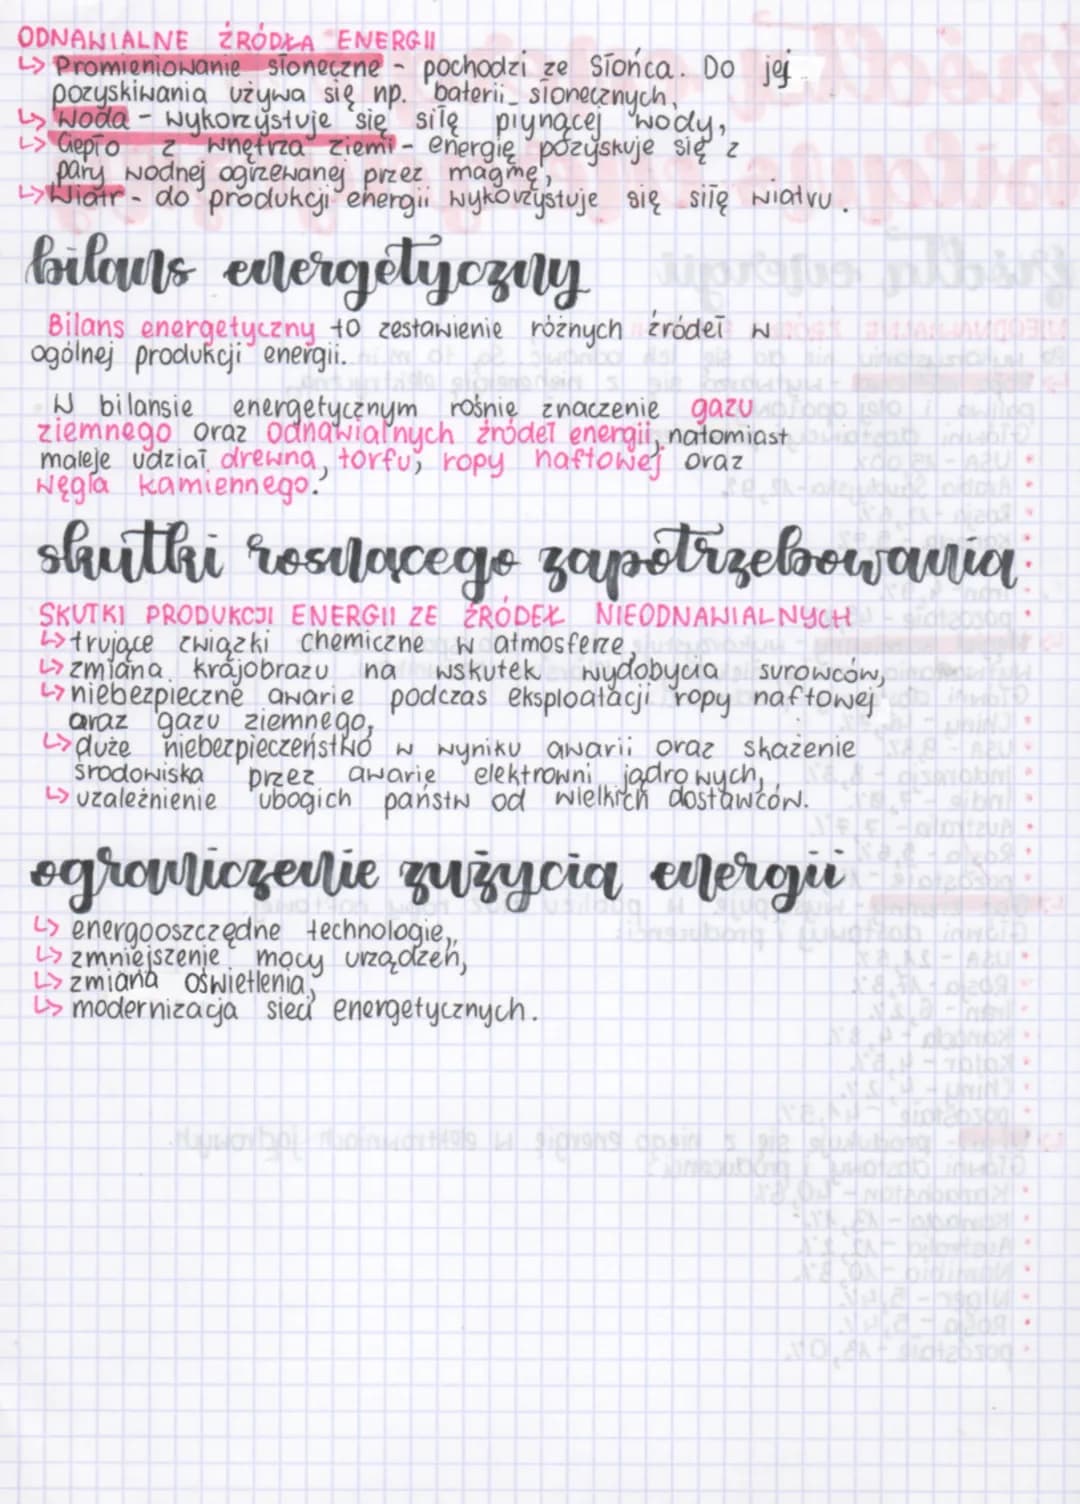 ODNAWIALNE ŹRÓDŁA ENERGII
↳ Promieniowanie słoneczne - pochodzi ze Słońca. Do jej
pozyskiwania używa się np. baterii słonecznych,
↳ Woda - wykorzystuje się siłę płynącej wody,
↳ Ciepło z wnętrza ziemi - energię pozyskuje się z
pary wodnej ogrzewanej przez magmę,
↳ Wiatr - do produkcji energii wykorzystuje się siłę wiatru.
bilans energetyczny
Bilans energetyczny to zestawienie różnych źródeł w
ogólnej produkcji energii.
W bilansie energetycznym rośnie znaczenie gazu
ziemnego oraz odnawialnych źródeł energii, natomiast
maleje udział drewna, torfu, ropy naftowej oraz
węgla kamiennego.
skutki rosnącego zapotrzebowania
SKUTKI PRODUKCJI ENERGII ZE ŹRÓDEŁ NIEODNAWIALNYCH
↳ trujące związki chemiczne w atmosferze,
↳ zmiana krajobrazu na wskutek wydobycia surowców,
↳ niebezpieczne awarie podczas eksploatacji ropy naftowej
oraz gazu ziemnego,
↳ duże niebezpieczeństwo w wyniku awarii oraz skażenie
środowiska przez awarie elektrowni jądrowych,
↳ uzależnienie ubogich państw od wielkich dostawców.
ograniczenie zużycia energii
↳ energooszczędne technologie,
↳ zmniejszenie mocy urządzeń,
↳ zmiana oświetlenia,
↳ modernizacja sieci energetycznych.